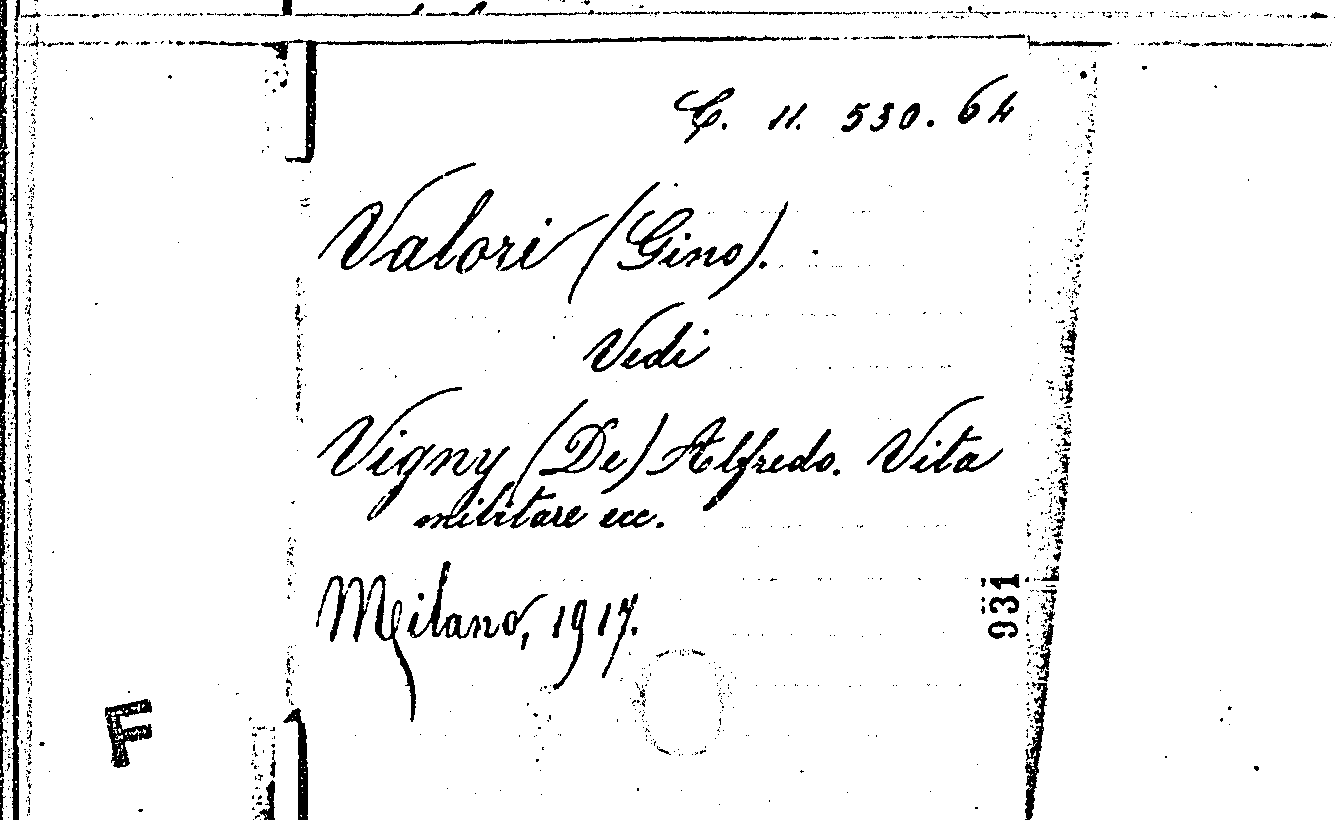 C. 11. 530. 64
Valori (Gino).
Vedi
Vigny (De) Alfredo. Vita
militare ecc.
Milano, 1917.
931
F